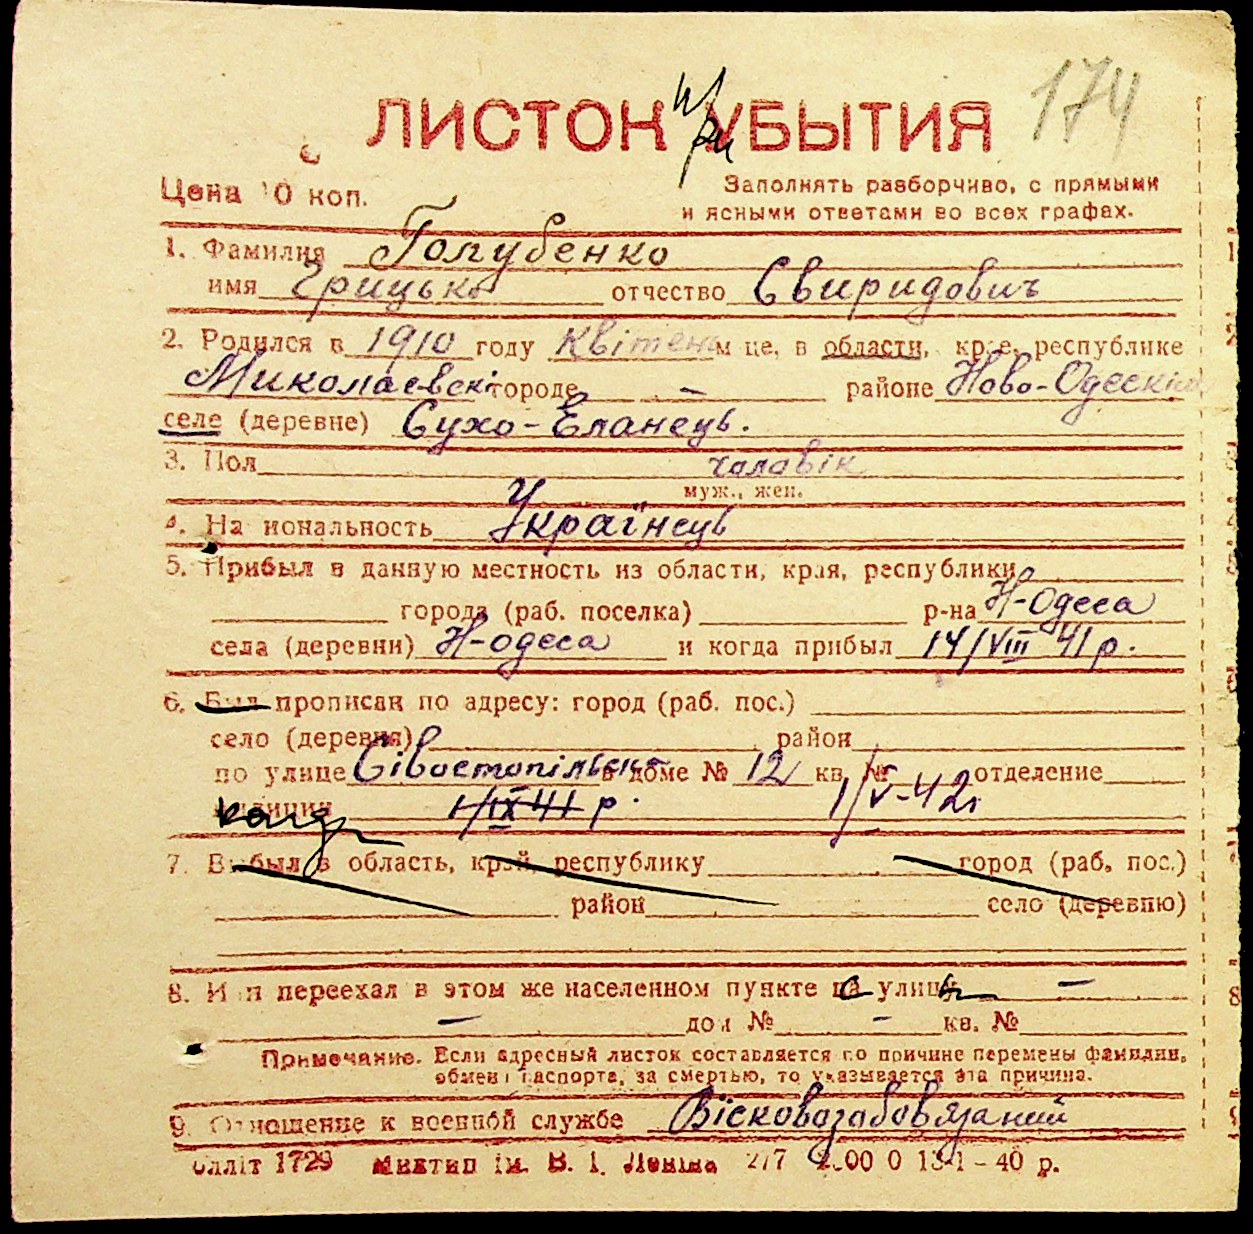 174
ЛИСТОК при УБЫТИЯ
Цена 10 коп.
Заполнять разборчиво, с прямыми
и ясными ответами во всех графах.
1. Фамилия Голубенко
имя Грицько отчество Свиридович
2. Родился в 1910 году Квітень м це, в области, крае, республике
Миколаевскі городе - районе Ново-Одескім
селе (деревне) Сухо-Еланець.
3. Пол чоловік
муж., жен.
4. На иональность Українець
5. Прибыл в данную местность из области, края, республики
города (раб. поселка) р-на Н-Одеса
села (деревни) Н-одеса и когда прибыл 14/VIII 41 р.
6. Был прописан по адресу: город (раб. пос.)
село (деревня) район
по улице Сівастопільска в доме № 12 кв. № отделение
милиции 1/IX 41 р. 1/V-42
7. Выбыл в область, край, республику город (раб. пос.)
район село (деревню)
8. И и переехал в этом же населенном пункте на улицу -
- дом № - кв. №
Примечание. Если адресный листок составляется по причине перемены фамилии,
обмен паспорта, за смертью, то указывается эта причина.
9. Отношение к военной службе Вісковозабовязаний
блліт 1729 Миктип ім. В. І. Леніна 2/7 2 00 0 13-1 - 40 р.